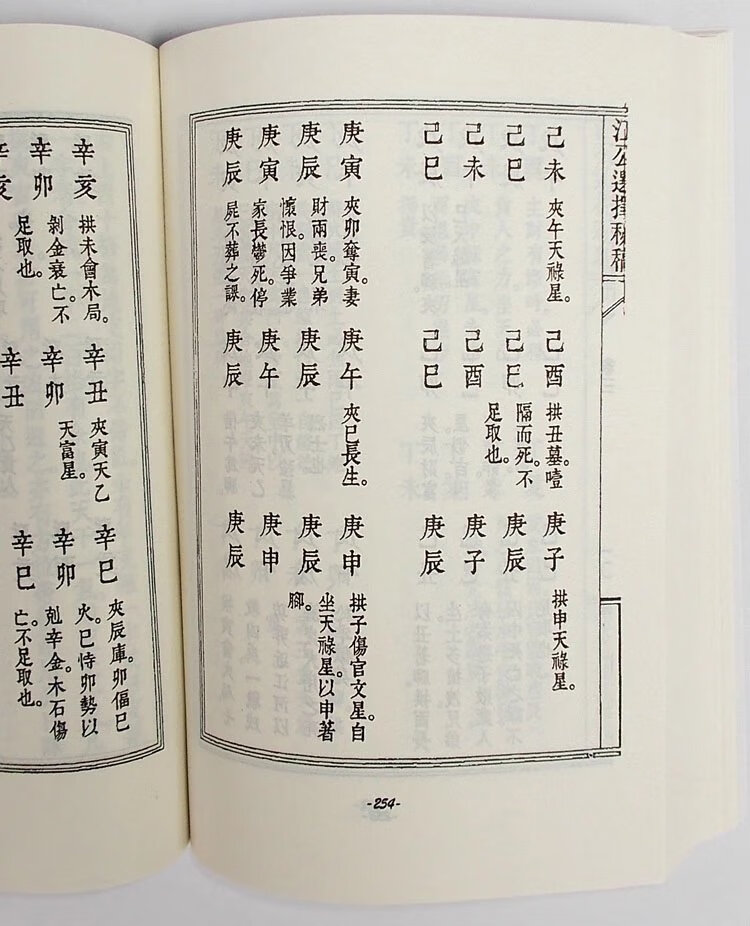 江公選擇秘稿
己未
己巳
己未
己巳
夾午天祿星。
己酉
己巳
己酉
己巳
拱丑墓。噎
隔而死。不
足取也。
庚子
庚辰
庚子
庚辰
拱申天祿星。
庚寅
庚辰
庚寅
庚辰
夾卯奪寅。妻
財兩喪。兄弟
懷恨。因爭業
家長鬱死。停
屍不葬之課。
庚午
庚辰
庚午
庚辰
夾巳長生。
庚申
庚辰
庚申
庚辰
拱子傷官文星。自
坐天祿星。以申著
腳。
-254-
辛亥
辛卯
辛亥
拱未會木局。
剝金衰亡。不
足取也。
辛丑
辛卯
辛丑
夾寅天乙
天富星。
辛巳
辛卯
辛巳
夾辰庫。卯偪巳
火。巳恃卯勢以
剋辛金。木石傷
亡。不足取也。